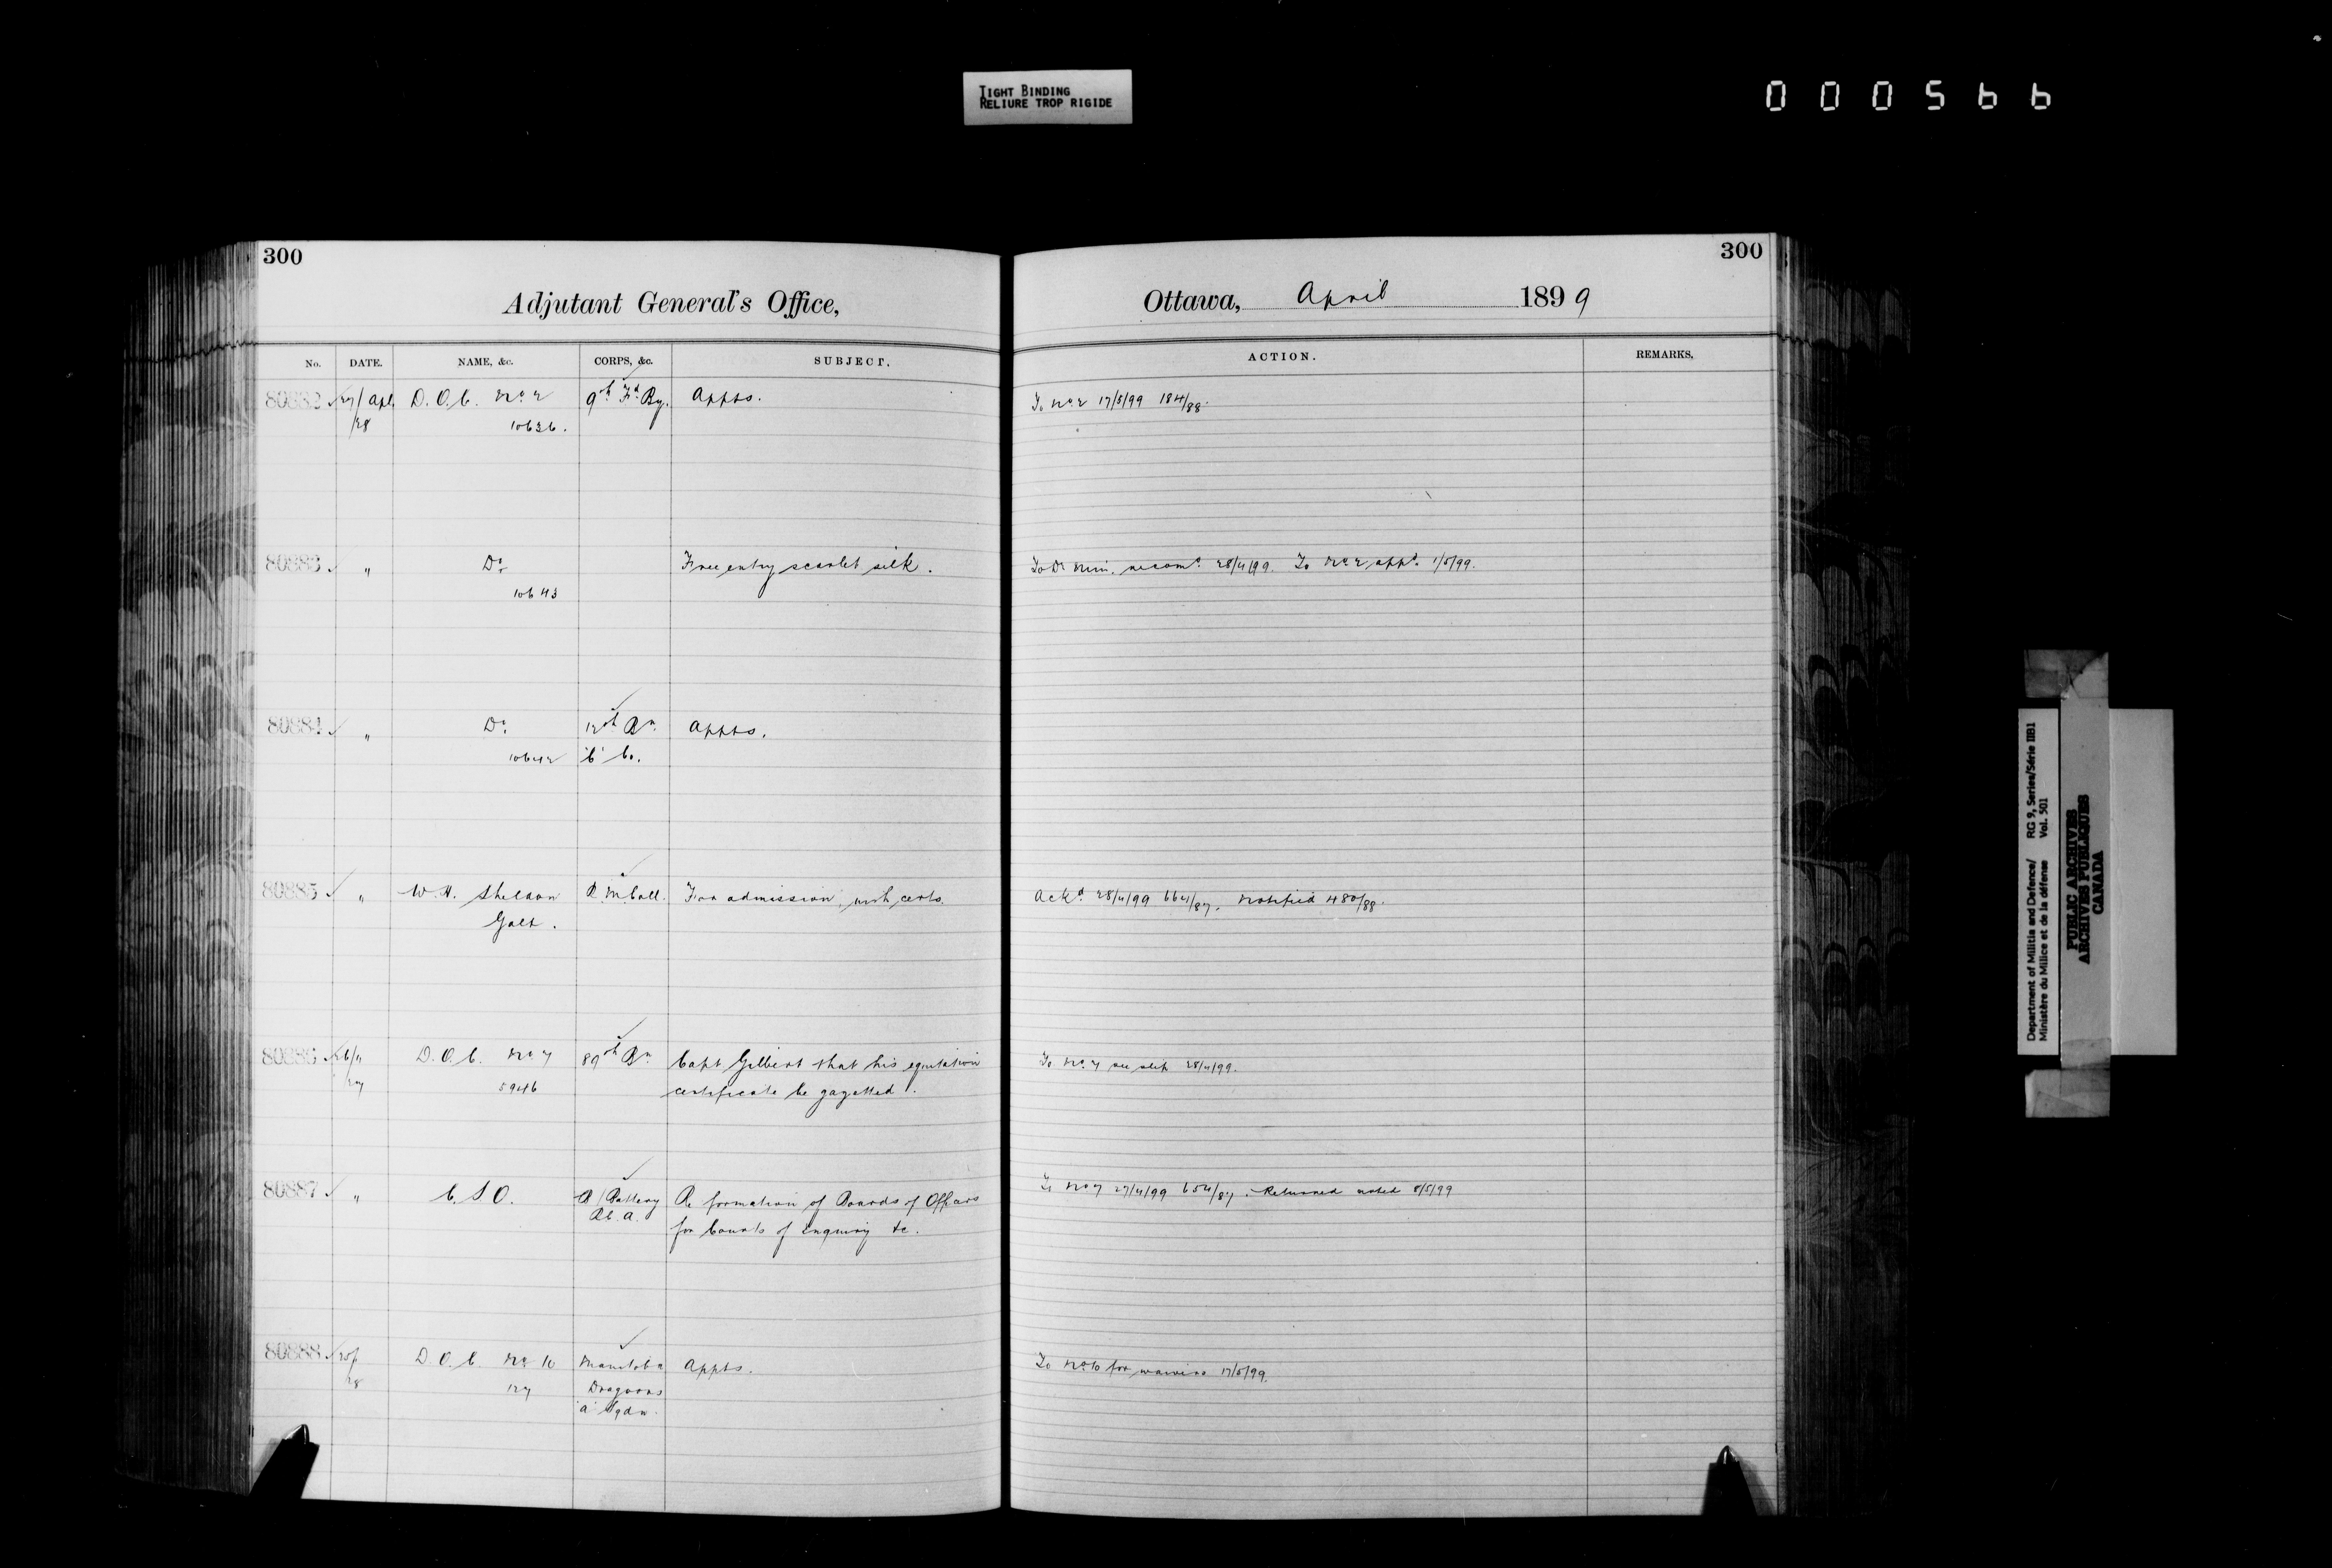 TIGHT BINDING
RELIURE TROP RIGIDE
000566
300
Adjutant General's Office,
No. DATE. NAME, &c. CORPS, &c. SUBJECT.
80882 27/Apl. D.O.C. No 2 9th Fd By. Appts.
/28 10636.
80883 " Do Free entry scarlet silk.
10643
80884 " Do 12th Bn. Appts.
10642 'C' Co.
80885 " W.H. Shelson R.M. Coll. For admission, with certs.
Galt.
80886 26/" D.O.C. No 7 89th Bn. Capt Gilbert that his equitation
/27 5946 certificate be gazetted.
80887 " C.S.O. B/Battery Re formation of Boards of Officers
R.C.A. for Courts of Enquiry &c.
80888 25/ D.O.C. No 10 Manitoba Appts.
28 127 Dragoons
'A' Sqdn.
300
Ottawa, April 1899
ACTION. REMARKS.
To No 2 17/5/99 184/88.
To D. Min. recomd. 28/4/99. To No 2 appd. 1/5/99.
Ackd 28/4/99 664/87. Notified 480/88.
To No 7 see slip 28/4/99.
To No 7 27/4/99 654/87. Returned noted 8/5/99
To No 10 for 17/5/99.
Department of Militia and Defence/ RG 9, Series/Série IIB1
Ministère du Milice et de la défense Vol. 501
PUBLIC ARCHIVES
ARCHIVES PUBLIQUES
CANADA